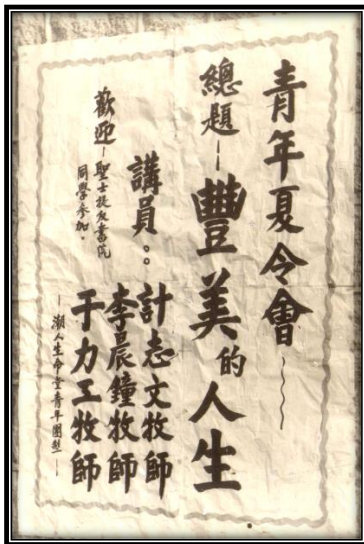 青年夏令會~
總題－豐美的人生
講員：
計志文牧師
李晨鐘牧師
于力工牧師
歡迎－聖士提反書院
同學參加。
－潮人生命堂青年團契－